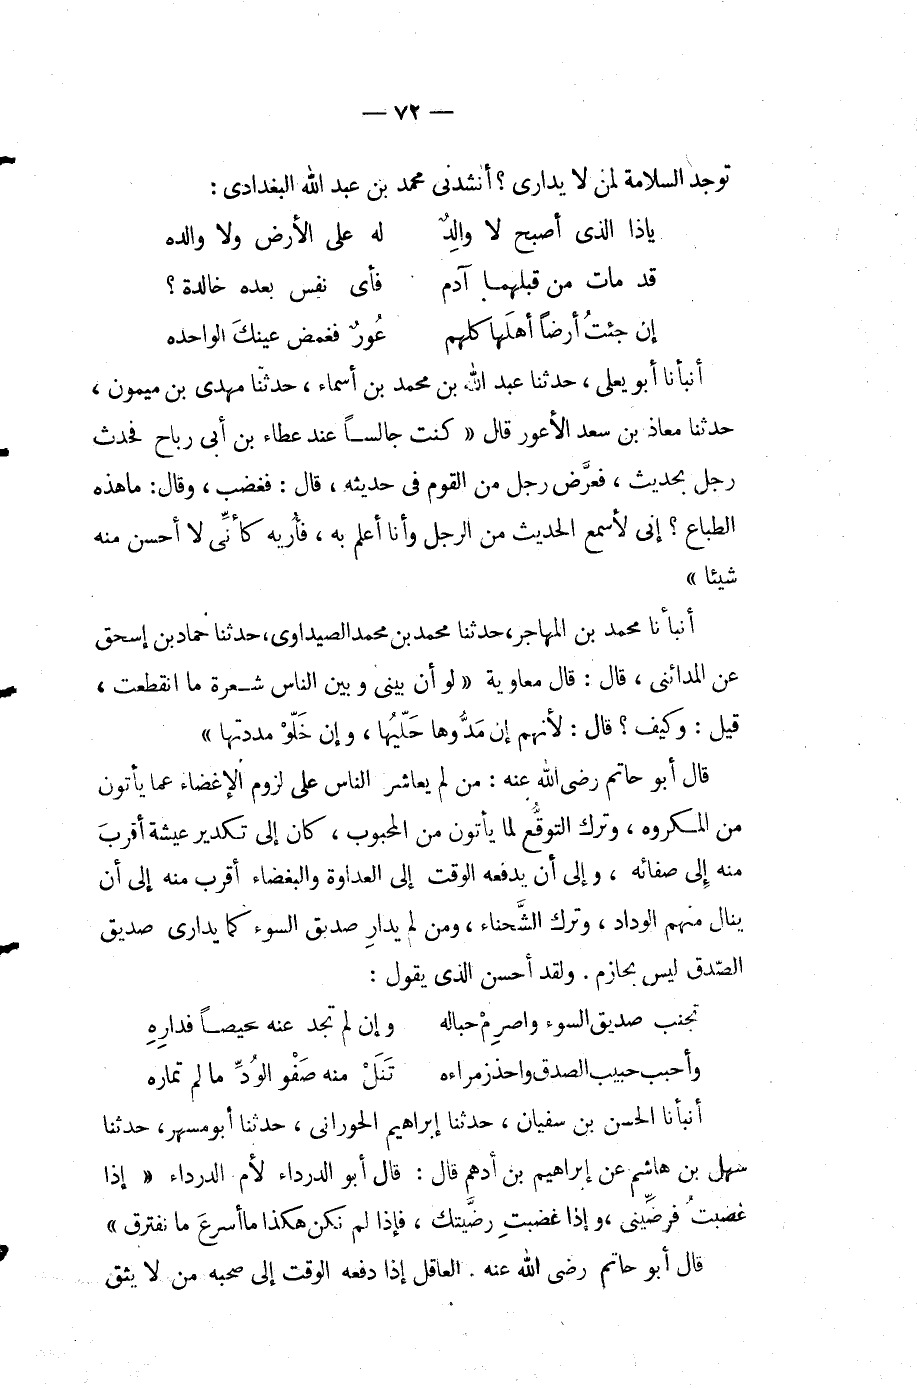 — ٧٢ —
توجد السلامة لمن لا يدارى ؟ أنشدنى محمد بن عبد الله البغدادى :
ياذا الذى أصبح لا والِدٌ له على الأرض ولا والده
قد مات من قبلهما آدم فأى نفس بعده خالدة ؟
إن جئتُ أرضاً أهلَها كلهم عُورٌ فغمض عينكَ الواحده
أنبأنا أبو يعلى ، حدثنا عبد الله بن محمد بن أسماء ، حدثنا مهدى بن ميمون ،
حدثنا معاذ بن سعد الأعور قال « كنت جالساً عند عطاء بن أبى رباح فحدث
رجل بحديث ، فعرَّض رجل من القوم فى حديثه ، قال : فغضب ، وقال : ماهذه
الطباع ؟ إنى لأسمع الحديث من الرجل وأنا أعلم به ، فأُريه كأنِّى لا أحسن منه
شيئا »
أنبأنا محمد بن المهاجر، حدثنا محمد بن محمد الصيداوى، حدثنا حماد بن إسحق
عن المدائنى ، قال : قال معاوية « لو أن بينى وبين الناس شعرة ما انقطعت ،
قيل : وكيف ؟ قال : لأنهم إن مَدُّوها خَلّيْتُها ، وإن خَلّوْ مددتها »
قال أبو حاتم رضى الله عنه : من لم يعاشر الناس على لزوم الإغضاء عما يأتون
من المكروه ، وترك التوقُّع لما يأتون من المحبوب ، كان إلى تكدير عيشة أقربَ
منه إلى صفائه ، وإلى أن يدفعه الوقت إلى العداوة والبغضاء أقرب منه إلى أن
ينال منهم الوداد ، وترك الشَّحناء ، ومن لم يدارِ صديق السوء كما يدارى صديق
الصّدق ليس بحازم . ولقد أحسن الذى يقول :
تجنب صديق السوء واصرِمْ حباله وإن لم تجد عنه محيصاً فدارِهِ
وأحبب حبيب الصدق واحذر مراءه تَنَلْ منه صَفْو الوُدِّ ما لم تماره
أنبأنا الحسن بن سفيان ، حدثنا إبراهيم الحورانى ، حدثنا أبو مسهر، حدثنا
سهل بن هاشم عن إبراهيم بن أدهم قال : قال أبو الدرداء لأم الدرداء « إذا
غضبتُ فرضِّينى ، وإذا غضبتِ رضَّيتك ، فإذا لم نكن هكذا ما أسرعَ ما نفترق »
قال أبو حاتم رضى الله عنه . العاقل إذا دفعه الوقت إلى صحبه من لا يثق